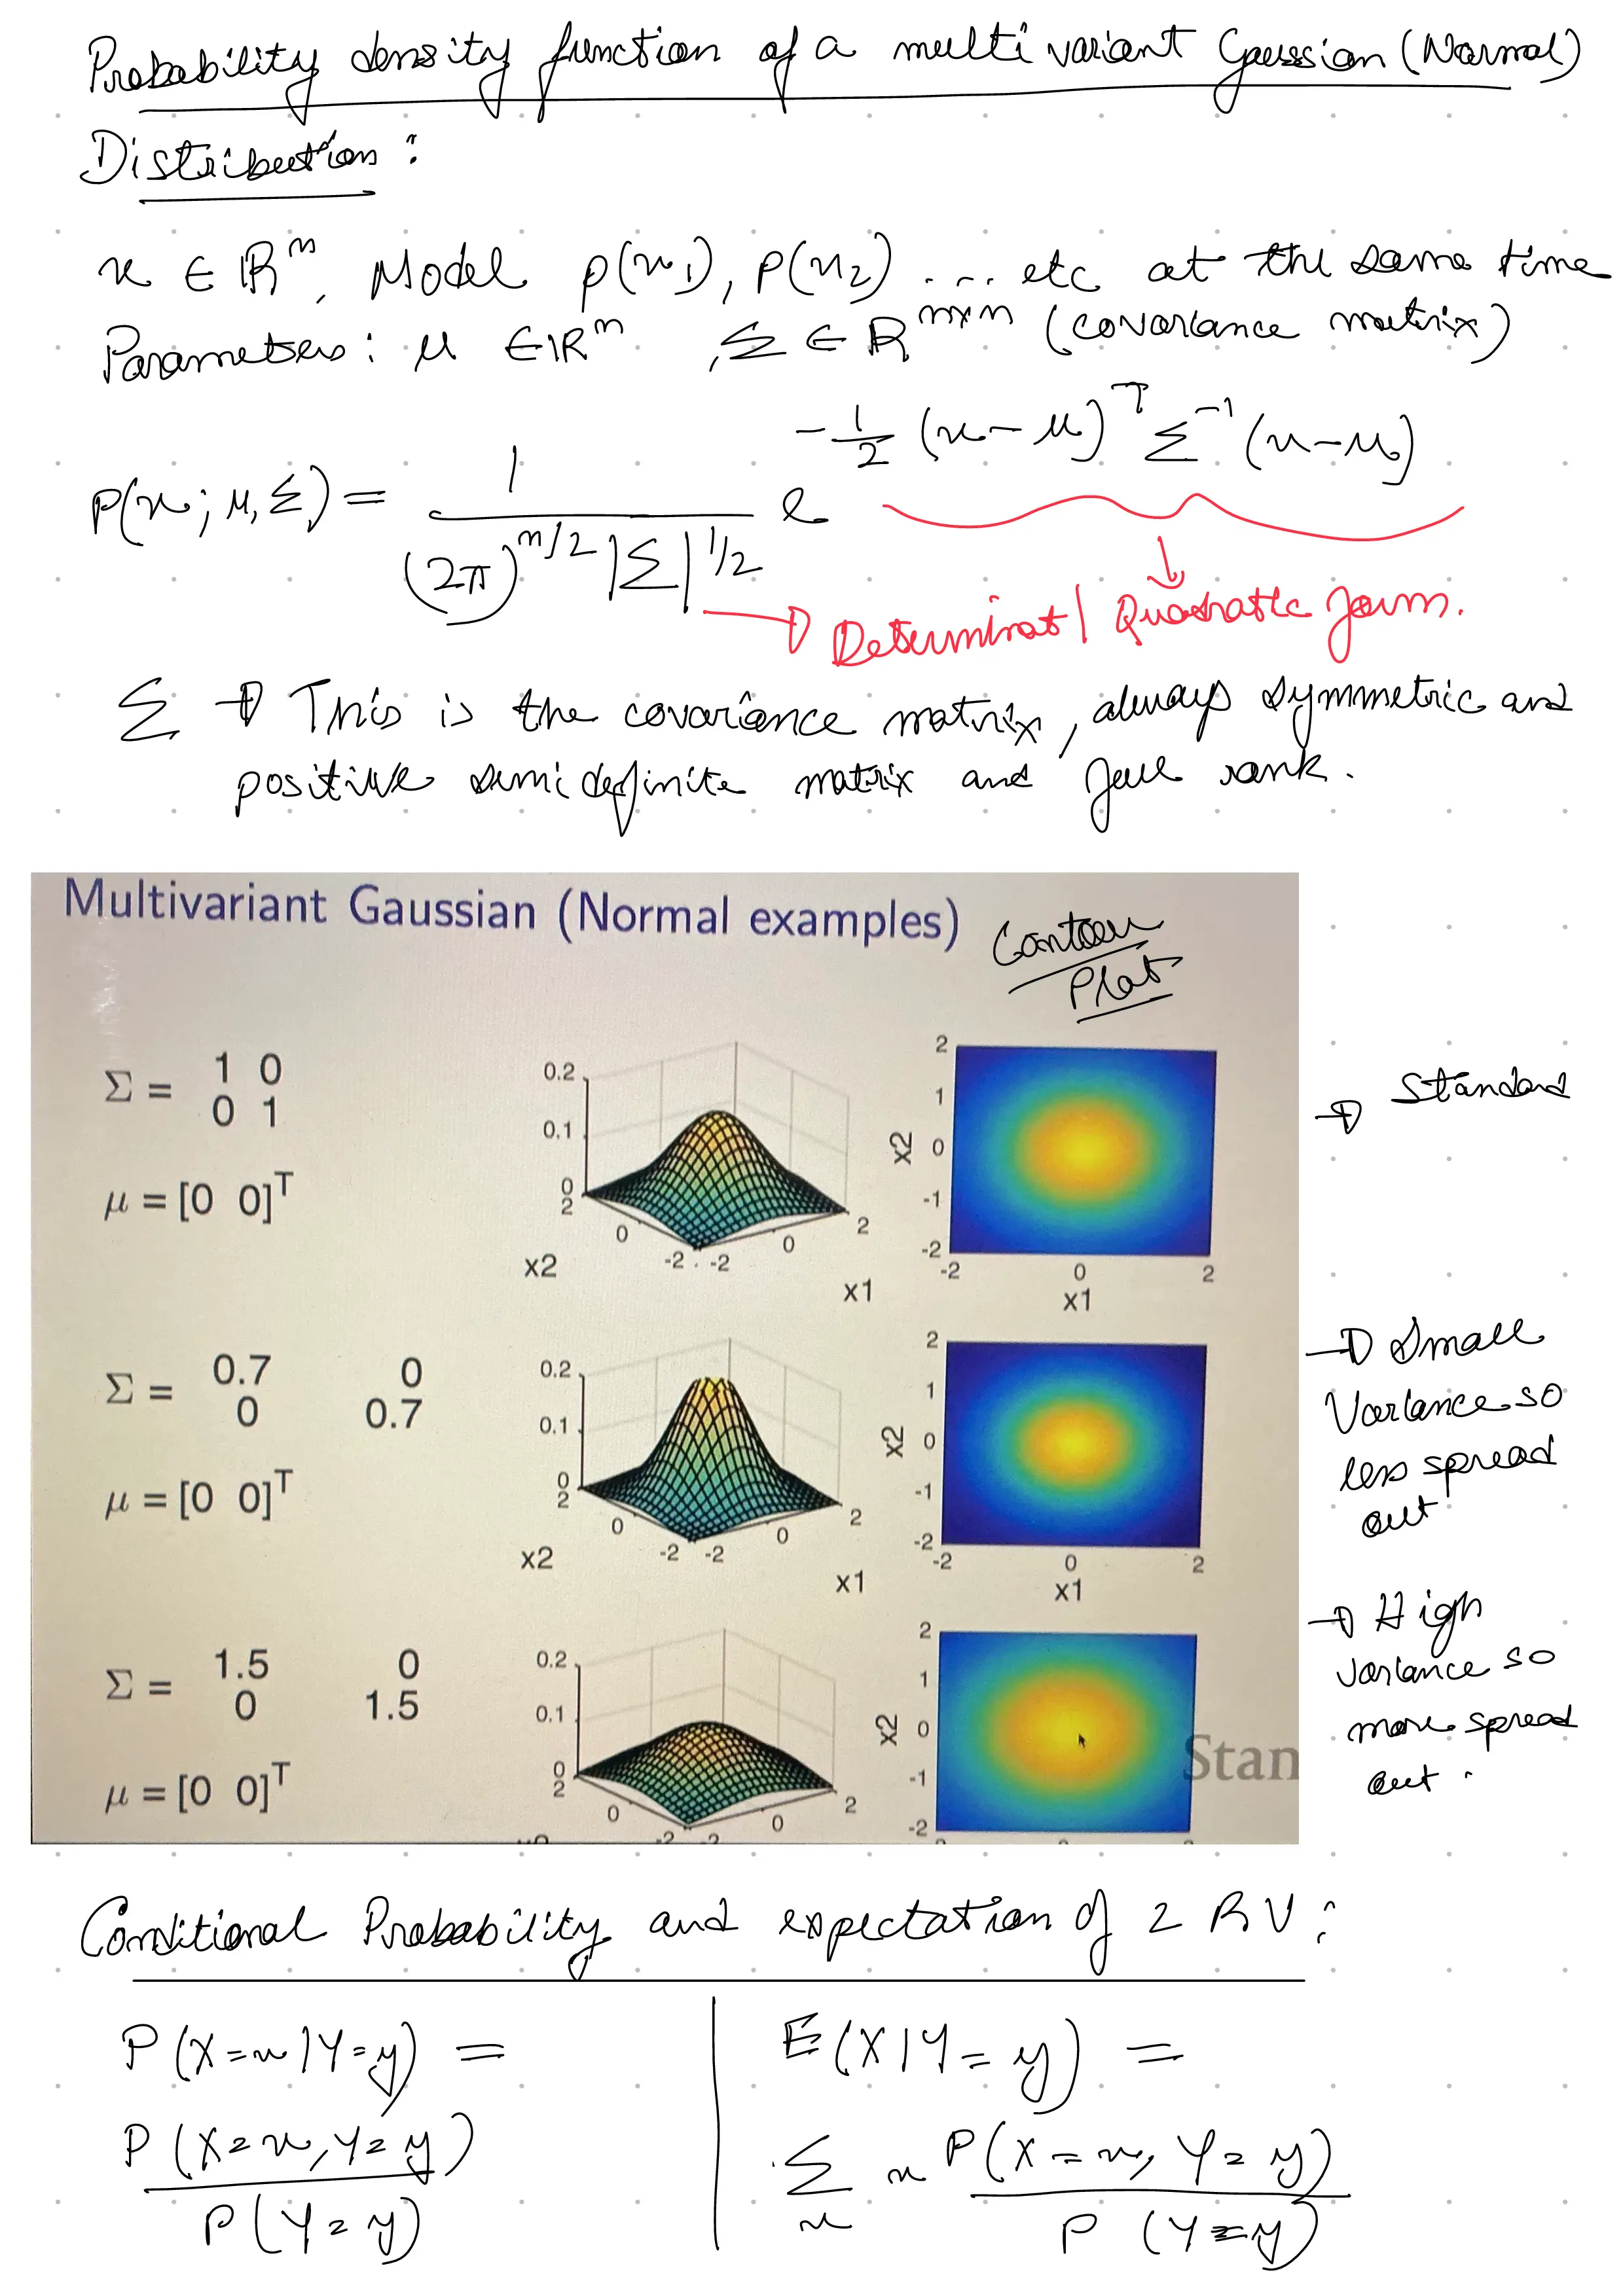 Probability density function of a multi variant Gaussian (Normal)
Distribution :
x ∈ ℝⁿ, Model p(x₁), p(x₂) .... etc at the same time
Parameters : μ ∈ ℝⁿ , Σ ∈ ℝⁿˣⁿ (covariance matrix)
P(x; μ, Σ) = 1 / ((2π)^(n/2) |Σ|^(1/2)) e^(-1/2 (x-μ)ᵀ Σ⁻¹ (x-μ))
→ Determinat | Quadratic form.
Σ → This is the covariance matrix, always symmetric and
positive semi definite matrix and full rank.
Multivariant Gaussian (Normal examples)
Contour
Plot
Σ = 1 0
0 1
μ = [0 0]ᵀ
0.2
0.1
0
2
0
-2
-2
0
2
x2
x1
2
1
0
-1
-2
x2
-2
0
2
x1
→ Standard
Σ = 0.7 0
0 0.7
μ = [0 0]ᵀ
0.2
0.1
0
2
0
-2
-2
0
2
x2
x1
2
1
0
-1
-2
x2
-2
0
2
x1
→ Small
Variance so
less spread
out
Σ = 1.5 0
0 1.5
μ = [0 0]ᵀ
0.2
0.1
0
2
0
0
2
2
1
0
-1
-2
x2
Stan
→ High
variance so
more spread
out .
Conditional Probability and expectation of 2 RV :
P(X=x|Y=y) =
P(X=x, Y=y)
P(Y=y)
E(X|Y=y) =
Σ x P(X=x, Y=y)
x P(Y=y)